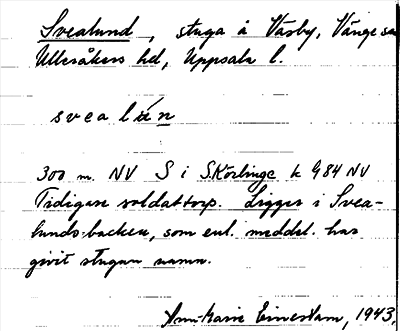 Svealund, stuga å Väsby, Vänge sn
Ulleråkers hd, Uppsala l.
svealún
300 m. NV S i S.Körlinge k 984 NV
Tidigare soldattorp. Ligger i Svea-
lundsbacken, som enl. meddel. har
givit stugan namn.
Ann-Marie Einestam, 1943.